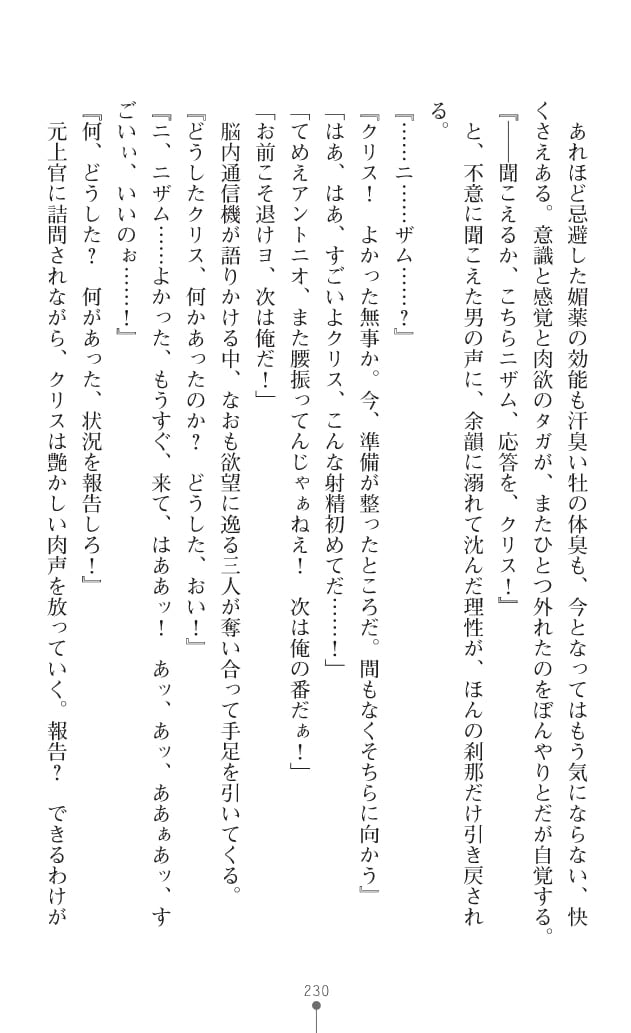 あれほど忌避した媚薬の効能も汗臭い牡の体臭も、今となってはもう気にならない、快
くさえある。意識と感覚と肉欲のタガが、またひとつ外れたのをぼんやりとだが自覚する。
『――聞こえるか、こちらニザム、応答を、クリス！』
と、不意に聞こえた男の声に、余韻に溺れて沈んだ理性が、ほんの刹那だけ引き戻され
る。
『……ニ……ザム……？』
『クリス！　よかった無事か。今、準備が整ったところだ。間もなくそちらに向かう』
「はあ、はあ、すごいよクリス、こんな射精初めてだ……！」
「てめえアントニオ、また腰振ってんじゃぁねえ！　次は俺の番だぁ！」
「お前こそ退けヨ、次は俺だ！」
脳内通信機が語りかける中、なおも欲望に逸る三人が奪い合って手足を引いてくる。
『どうしたクリス、何かあったのか？　どうした、おい！』
『ニ、ニザム……よかった、もうすぐ、来て、はああッ！　あッ、あッ、ああぁあッ、す
ごいぃ、いいのぉ……！』
『何、どうした？　何があった、状況を報告しろ！』
元上官に詰問されながら、クリスは艶かしい肉声を放っていく。報告？　できるわけが
230